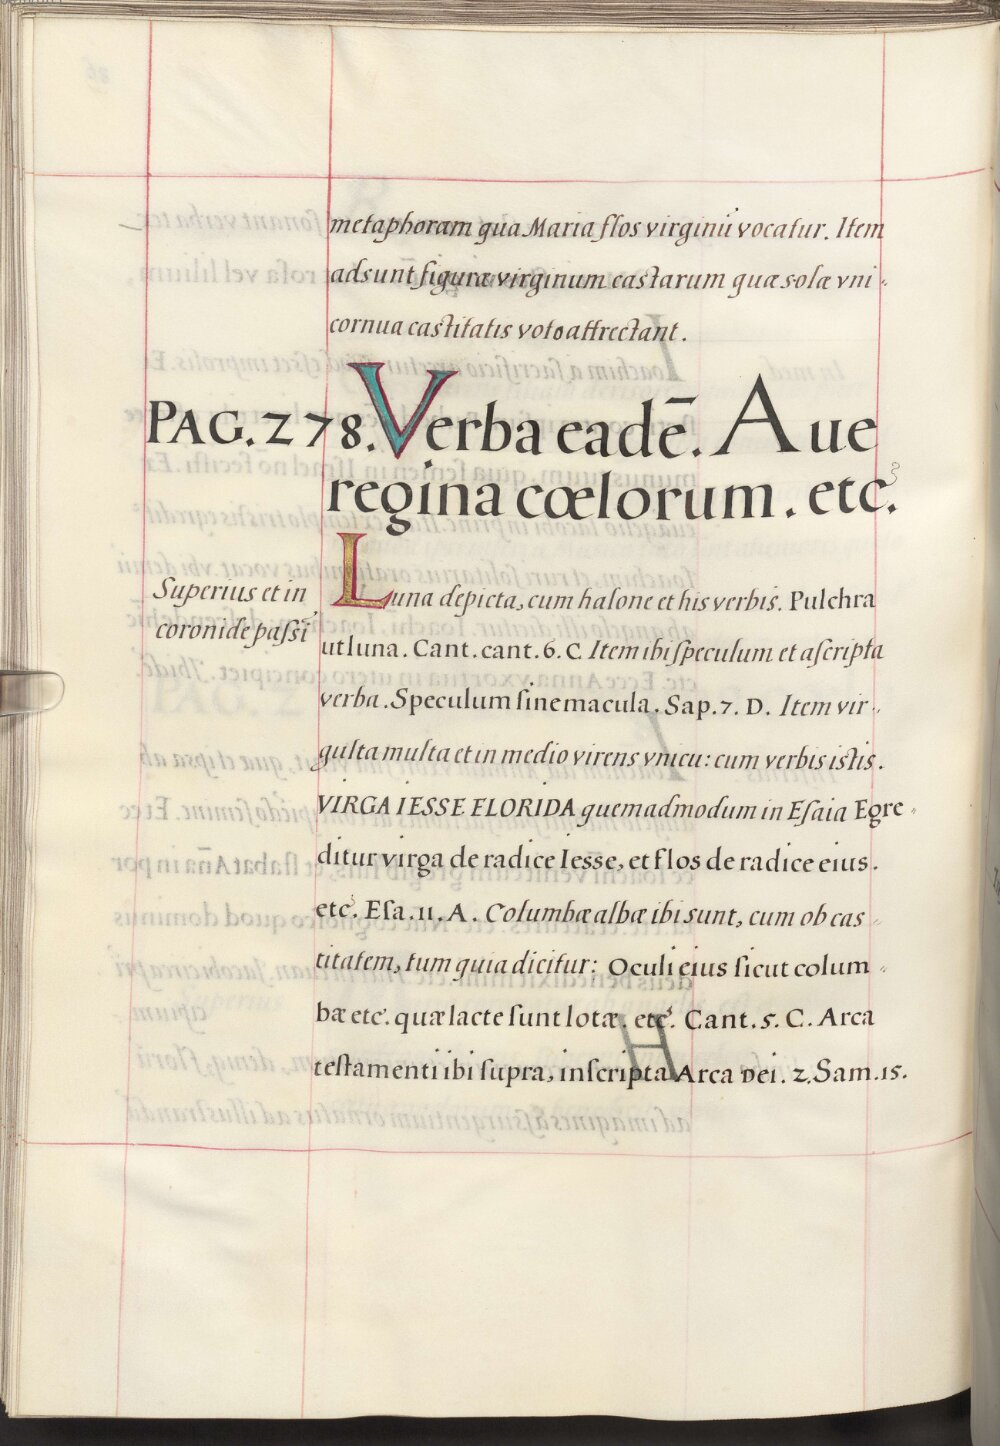 metaphoram qua Maria flos virginũ vocatur. Item
adsunt figuræ virginum castarum quæ solæ vni-
cornua castitatis voto affrectant.
PAG. 278. Verba eadē. Aue
regina cœlorum. etc.
Superius et in
coronide passĩ
Luna depicta, cum halone et his verbis. Pulchra
ut luna. Cant. cant. 6. C. Item ibi ſpeculum et aſcripta
verba. Speculum ſine macula. Sap. 7. D. Item vir-
gulta multa et in medio virens vnicũ: cum verbis istis.
VIRGA IESSE FLORIDA quemadmodum in Eſaia Egre-
ditur virga de radice Iesse, et flos de radice eius.
etc. Eſa. 11. A. Columbæ albæ ibi sunt, cum ob cas-
titatem, tum quia dicitur: Oculi eius ſicut colum-
bæ etc. quæ lacte ſunt lotæ. etc. Cant. 5. C. Arca
teſtamenti ibi ſupra, inſcripta Arca Dei. 2. Sam. 15.